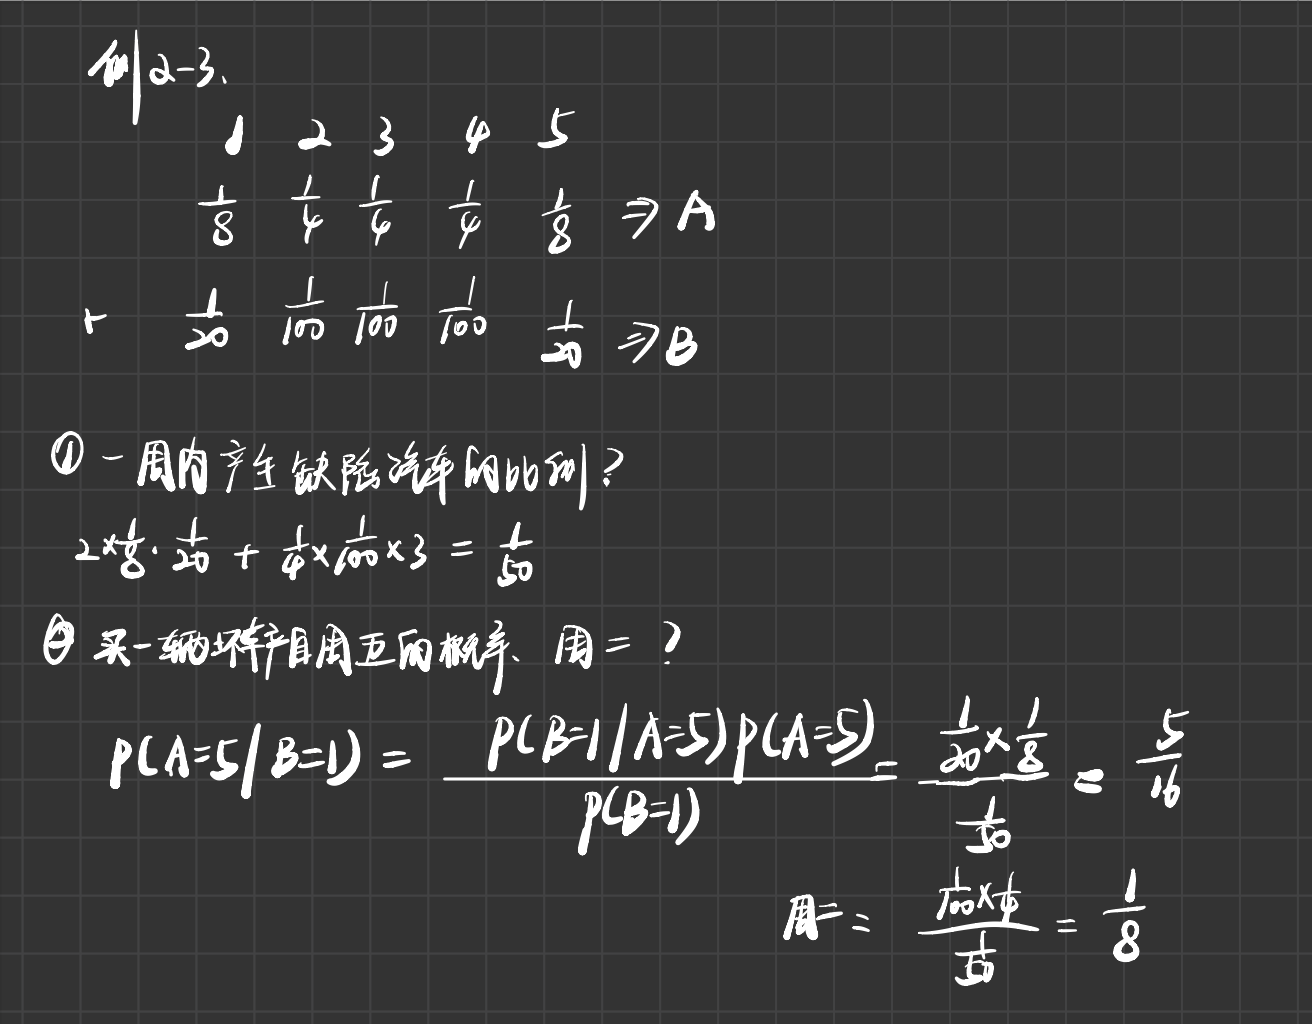 例2-3、
1 2 3 4 5
1/8 1/4 1/4 1/4 1/8 ⇒ A
1/20 1/100 1/100 1/100 1/20 ⇒ B
① 一周内产生缺陷汽车的比例?
2×1/8·1/20 + 1/4×1/100×3 = 1/50
② 买一辆坏车产自周五的概率、周二?
P(A=5/B=1) = P(B=1/A=5)P(A=5)/P(B=1) = (1/20×1/8)/(1/50) = 5/16
周二 = (1/100×1/4)/(1/50) = 1/8